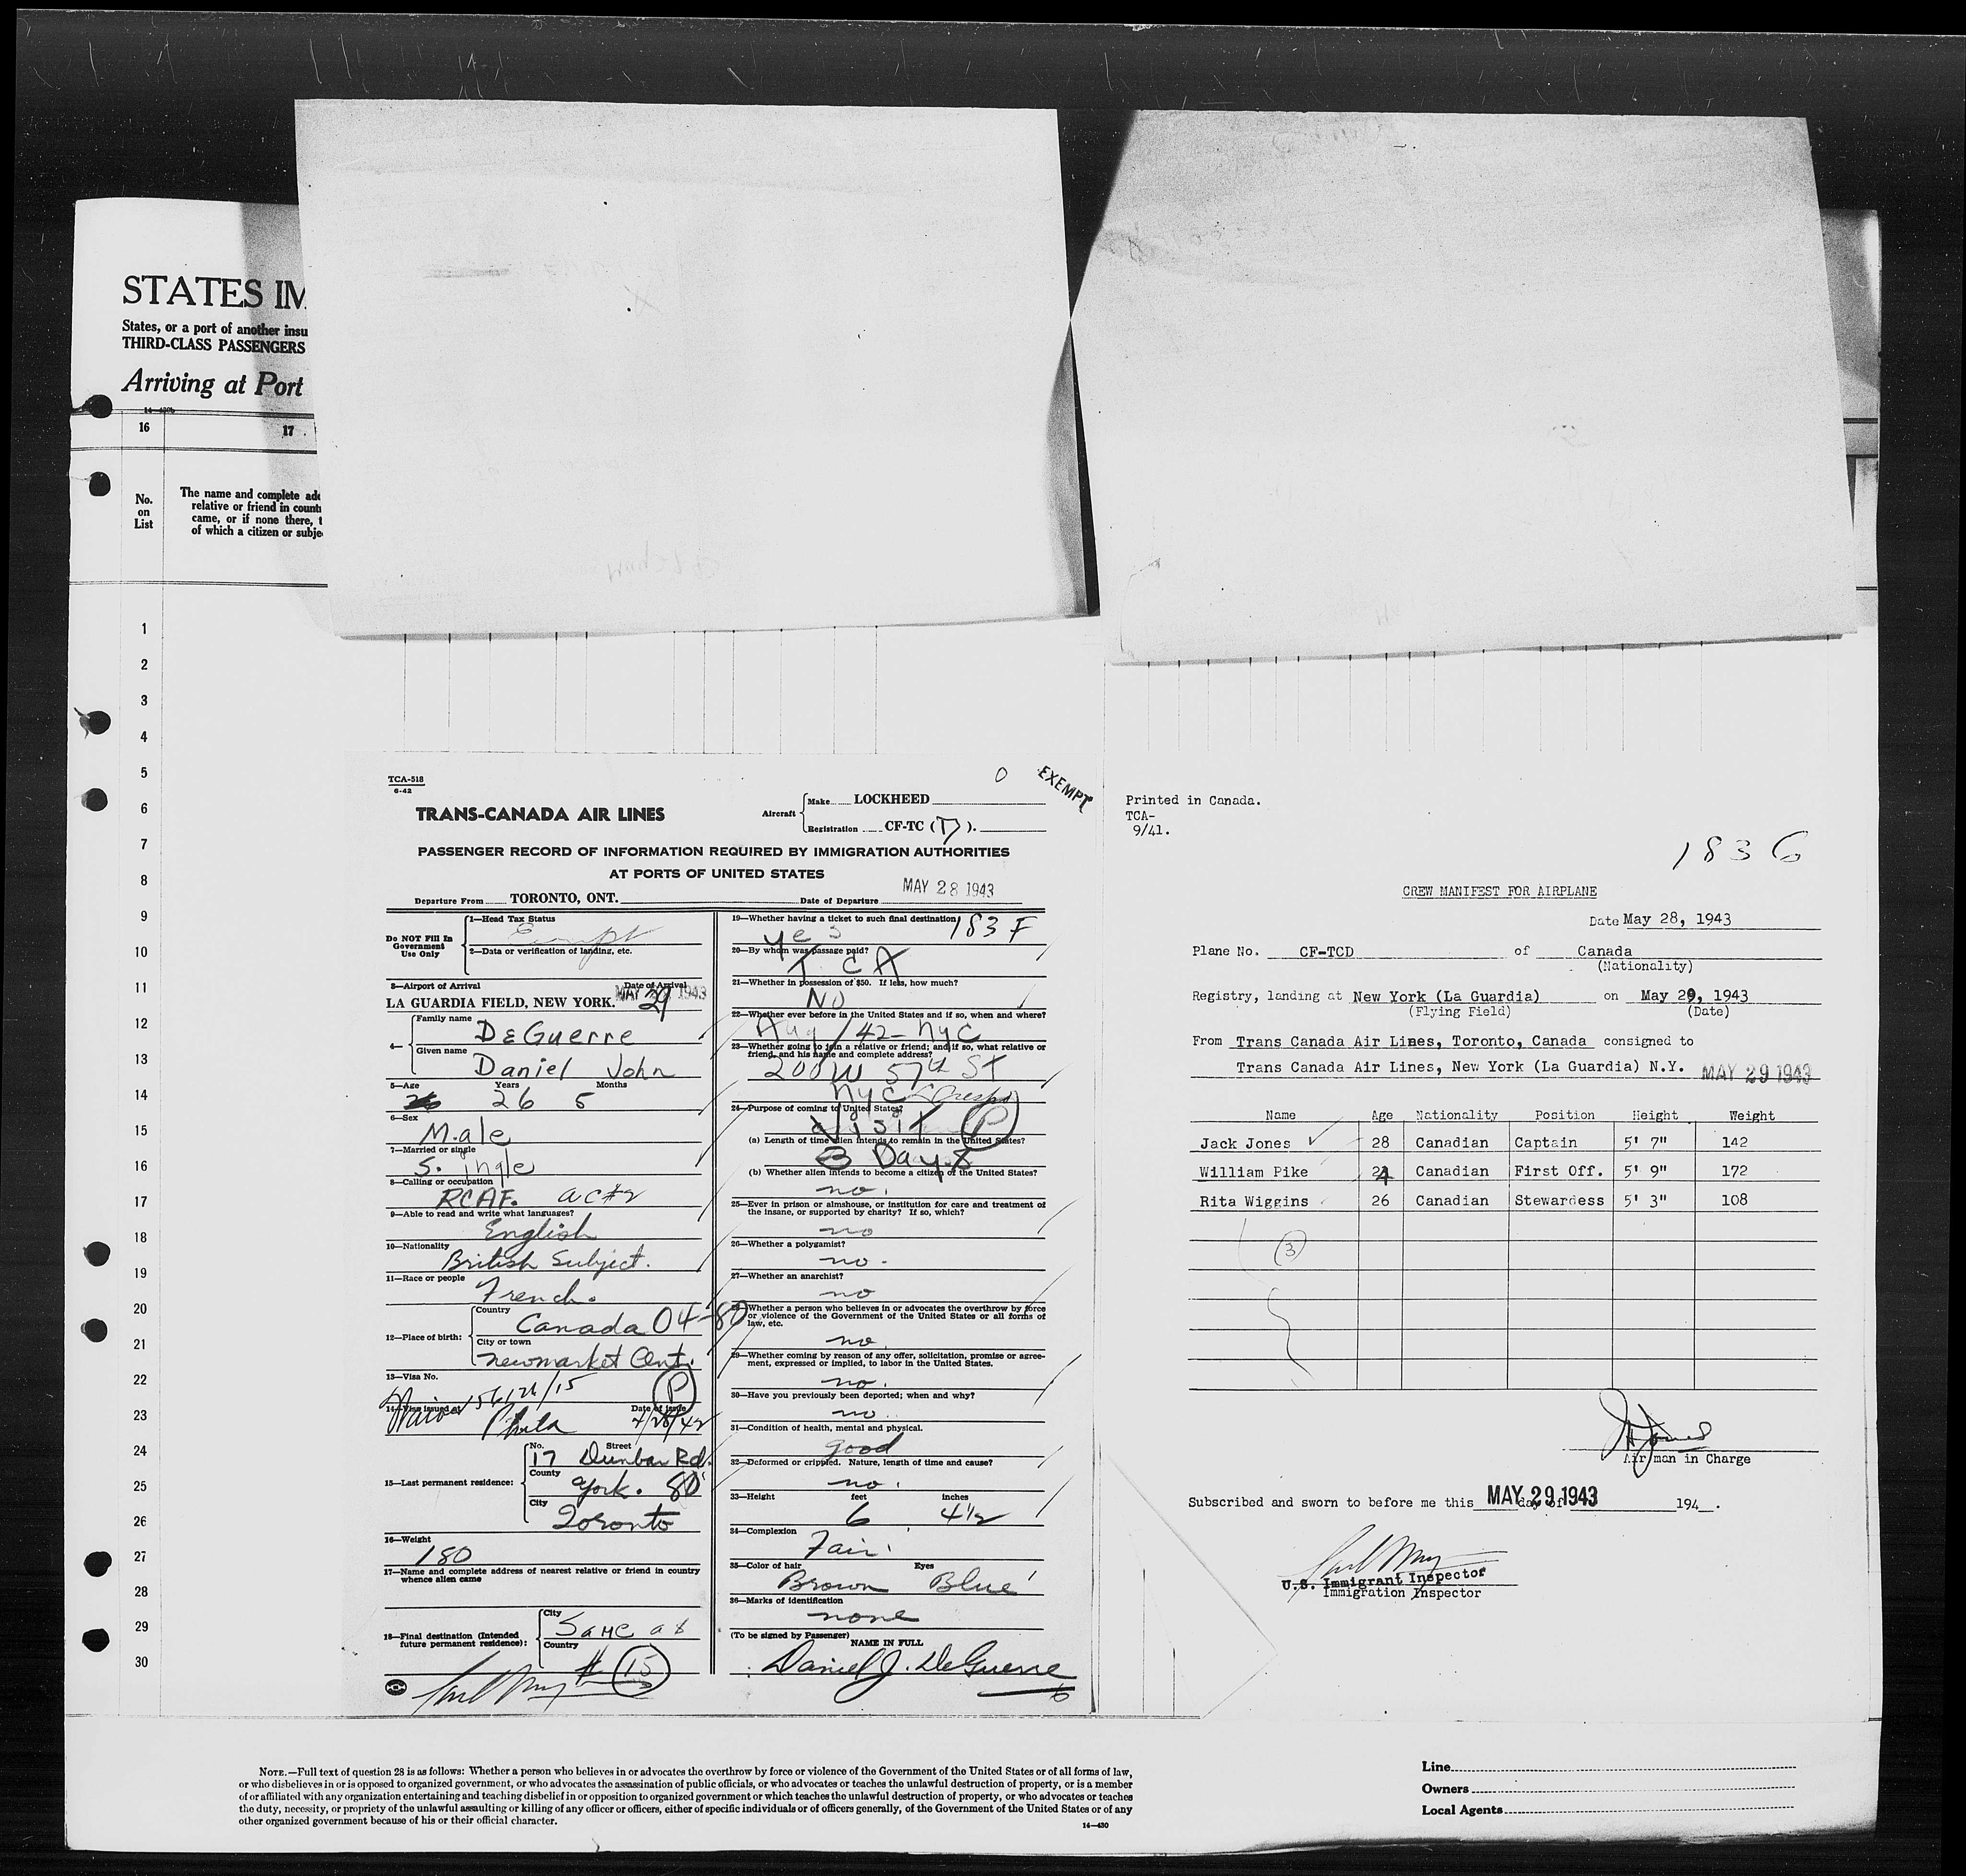 STATES IM
States, or a port of another insu
THIRD-CLASS PASSENGERS
Arriving at Port
16
17
No. on List
The name and complete add
relative or friend in count
came, or if none there, t
of which a citizen or subje
1
2
3
4
5
6
7
8
9
10
11
12
13
14
15
16
17
18
19
20
21
22
23
24
25
26
27
28
29
30
TCA-518
6-42
EXEMPT
TRANS-CANADA AIR LINES
Aircraft
Make LOCKHEED
Registration CF-TC (D).
PASSENGER RECORD OF INFORMATION REQUIRED BY IMMIGRATION AUTHORITIES
AT PORTS OF UNITED STATES
MAY 28 1943
Departure From TORONTO, ONT. Date of Departure
Do NOT Fill In Government Use Only
1—Head Tax Status
Exempt
2—Data or verification of landing, etc.
3—Airport of Arrival Date of Arrival
LA GUARDIA FIELD, NEW YORK. MAY 29 1943
4—
Family name DeGuerre
Given name Daniel John
5—Age Years Months
26 5
6—Sex
Male
7—Married or single
Single
8—Calling or occupation
RCAF. AC#2
9—Able to read and write what languages?
English
10—Nationality
British Subject.
11—Race or people
French.
12—Place of birth:
Country
Canada 04-80
City or town
Newmarket Ont.
13—Visa No.
P
14—Visa issued at Date of issue
Phila
15—Last permanent residence:
No. Street
17 Dunbar Rd.
County
York. 80
City
Toronto
16—Weight
180
17—Name and complete address of nearest relative or friend in country
whence alien came
18—Final destination (Intended
future permanent residence):
City
Same as
Country
# 15
19—Whether having a ticket to such final destination
183 F
yes
20—By whom was passage paid?
T C A
21—Whether in possession of $50. If less, how much?
NO
22—Whether ever before in the United States and if so, when and where?
Aug /42 - NYC
23—Whether going to join a relative or friend; and if so, what relative or
friend, and his name and complete address?
200 W 57th St
NYC
24—Purpose of coming to United States?
Visit P
(a) Length of time alien intends to remain in the United States?
8 Days
(b) Whether alien intends to become a citizen of the United States?
no.
25—Ever in prison or almshouse, or institution for care and treatment of
the insane, or supported by charity? If so, which?
no
26—Whether a polygamist?
no.
27—Whether an anarchist?
no
28—Whether a person who believes in or advocates the overthrow by force
or violence of the Government of the United States or all forms of
law, etc.
no
29—Whether coming by reason of any offer, solicitation, promise or agree-
ment, expressed or implied, to labor in the United States.
no.
30—Have you previously been deported; when and why?
no
31—Condition of health, mental and physical.
good
32—Deformed or crippled. Nature, length of time and cause?
no.
33—Height feet inches
6 4½
34—Complexion
Fair
35—Color of hair Eyes
Brown Blue
36—Marks of identification
none
(To be signed by Passenger)
NAME IN FULL
Daniel J. DeGuerre
Printed in Canada.
TCA-
9/41.
183 G
CREW MANIFEST FOR AIRPLANE
Date May 28, 1943
Plane No. CF-TCD of Canada
(Nationality)
Registry, landing at New York (La Guardia) on May 29, 1943
(Flying Field) (Date)
From Trans Canada Air Lines, Toronto, Canada consigned to
Trans Canada Air Lines, New York (La Guardia) N.Y. MAY 29 1943
Name Age Nationality Position Height Weight
Jack Jones 28 Canadian Captain 5' 7" 142
William Pike 24 Canadian First Off. 5' 9" 172
Rita Wiggins 26 Canadian Stewardess 5' 3" 108
3
Airman in Charge
Subscribed and sworn to before me this MAY 29 1943 day of 194 .
U.S. Immigrant Inspector
Immigration Inspector
NOTE.—Full text of question 28 is as follows: Whether a person who believes in or advocates the overthrow by force or violence of the Government of the United States or of all forms of law,
or who disbelieves in or is opposed to organized government, or who advocates the assassination of public officials, or who advocates or teaches the unlawful destruction of property, or is a member
of or affiliated with any organization entertaining and teaching disbelief in or opposition to organized government or which teaches the unlawful destruction of property, or who advocates or teaches
the duty, necessity, or propriety of the unlawful assaulting or killing of any officer or officers, either of specific individuals or of officers generally, of the Government of the United States or of any
other organized government because of his or their official character.
14—430
Line
Owners
Local Agents